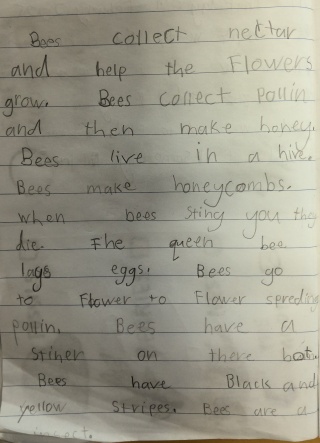 Bees collect nectar
and help the Flowers
grow. Bees collect Pollin
and then make honey.
Bees live in a hive.
Bees make honeycombs.
when bees sting you they
die. The queen bee
lays eggs. Bees go
to Flower to Flower spreding
pollin. Bees have a
Stiner on there bot.
Bees have Black and
yellow Stripes. Bees are a